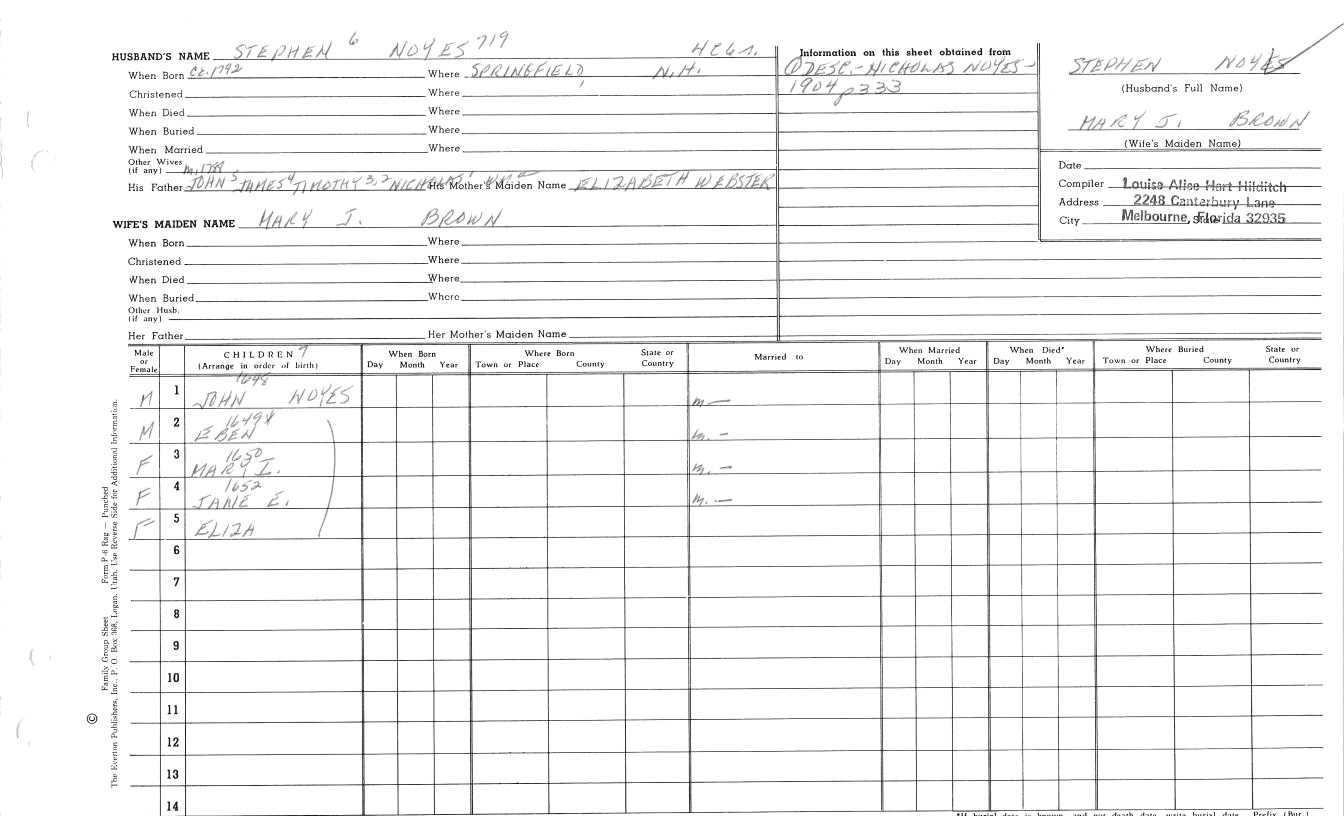 HUSBAND'S NAME STEPHEN 6 NOYES 719 4C6n.
When Born Ca. 1792 Where SPRINGFIELD, N.H.
Christened Where
When Died Where
When Buried Where
When Married Where
Other Wives (if any) m. 1788
His Father JOHN 5 JAMES 4 TIMOTHY 3,2 NICHOLAS His Mother's Maiden Name ELIZABETH WEBSTER
WIFE'S MAIDEN NAME MARY J. BROWN
When Born Where
Christened Where
When Died Where
When Buried Where
Other Husb. (if any)
Her Father Her Mother's Maiden Name
Information on this sheet obtained from
① DESC.-NICHOLAS NOYES-
1904 p333
STEPHEN NOYES
(Husband's Full Name)
MARY J. BROWN
(Wife's Maiden Name)
Date
Compiler Louise Alice Hart Hilditch
Address 2248 Canterbury Lane
City Melbourne, State Florida 32935
Male or Female CHILDREN 7 (Arrange in order of birth) When Born Day Month Year Where Born Town or Place County State or Country Married to When Married Day Month Year When Died* Day Month Year Where Buried Town or Place County State or Country
1648
M 1 JOHN NOYES m —
1649X
M 2 EBEN m. -
1650
F 3 MARY I. m. —
1652
F 4 JANE E. m. —
F 5 ELIZA
6
7
8
9
10
11
12
13
14
*If burial date is known, and not death date, write burial date. Prefix (Bur.)
© Family Group Sheet Form P-6 Rag — Punched
The Everton Publishers, Inc., P. O. Box 368, Logan, Utah. Use Reverse Side for Additional Information.